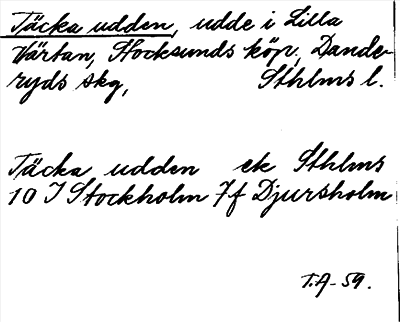 Täcka udden, udde i Lilla
Värtan, Stocksunds köp., Dande-
ryds skg, Sthlms l.
Täcka udden ek Sthlms
10 I Stockholm 7f Djursholm
T.A-59.